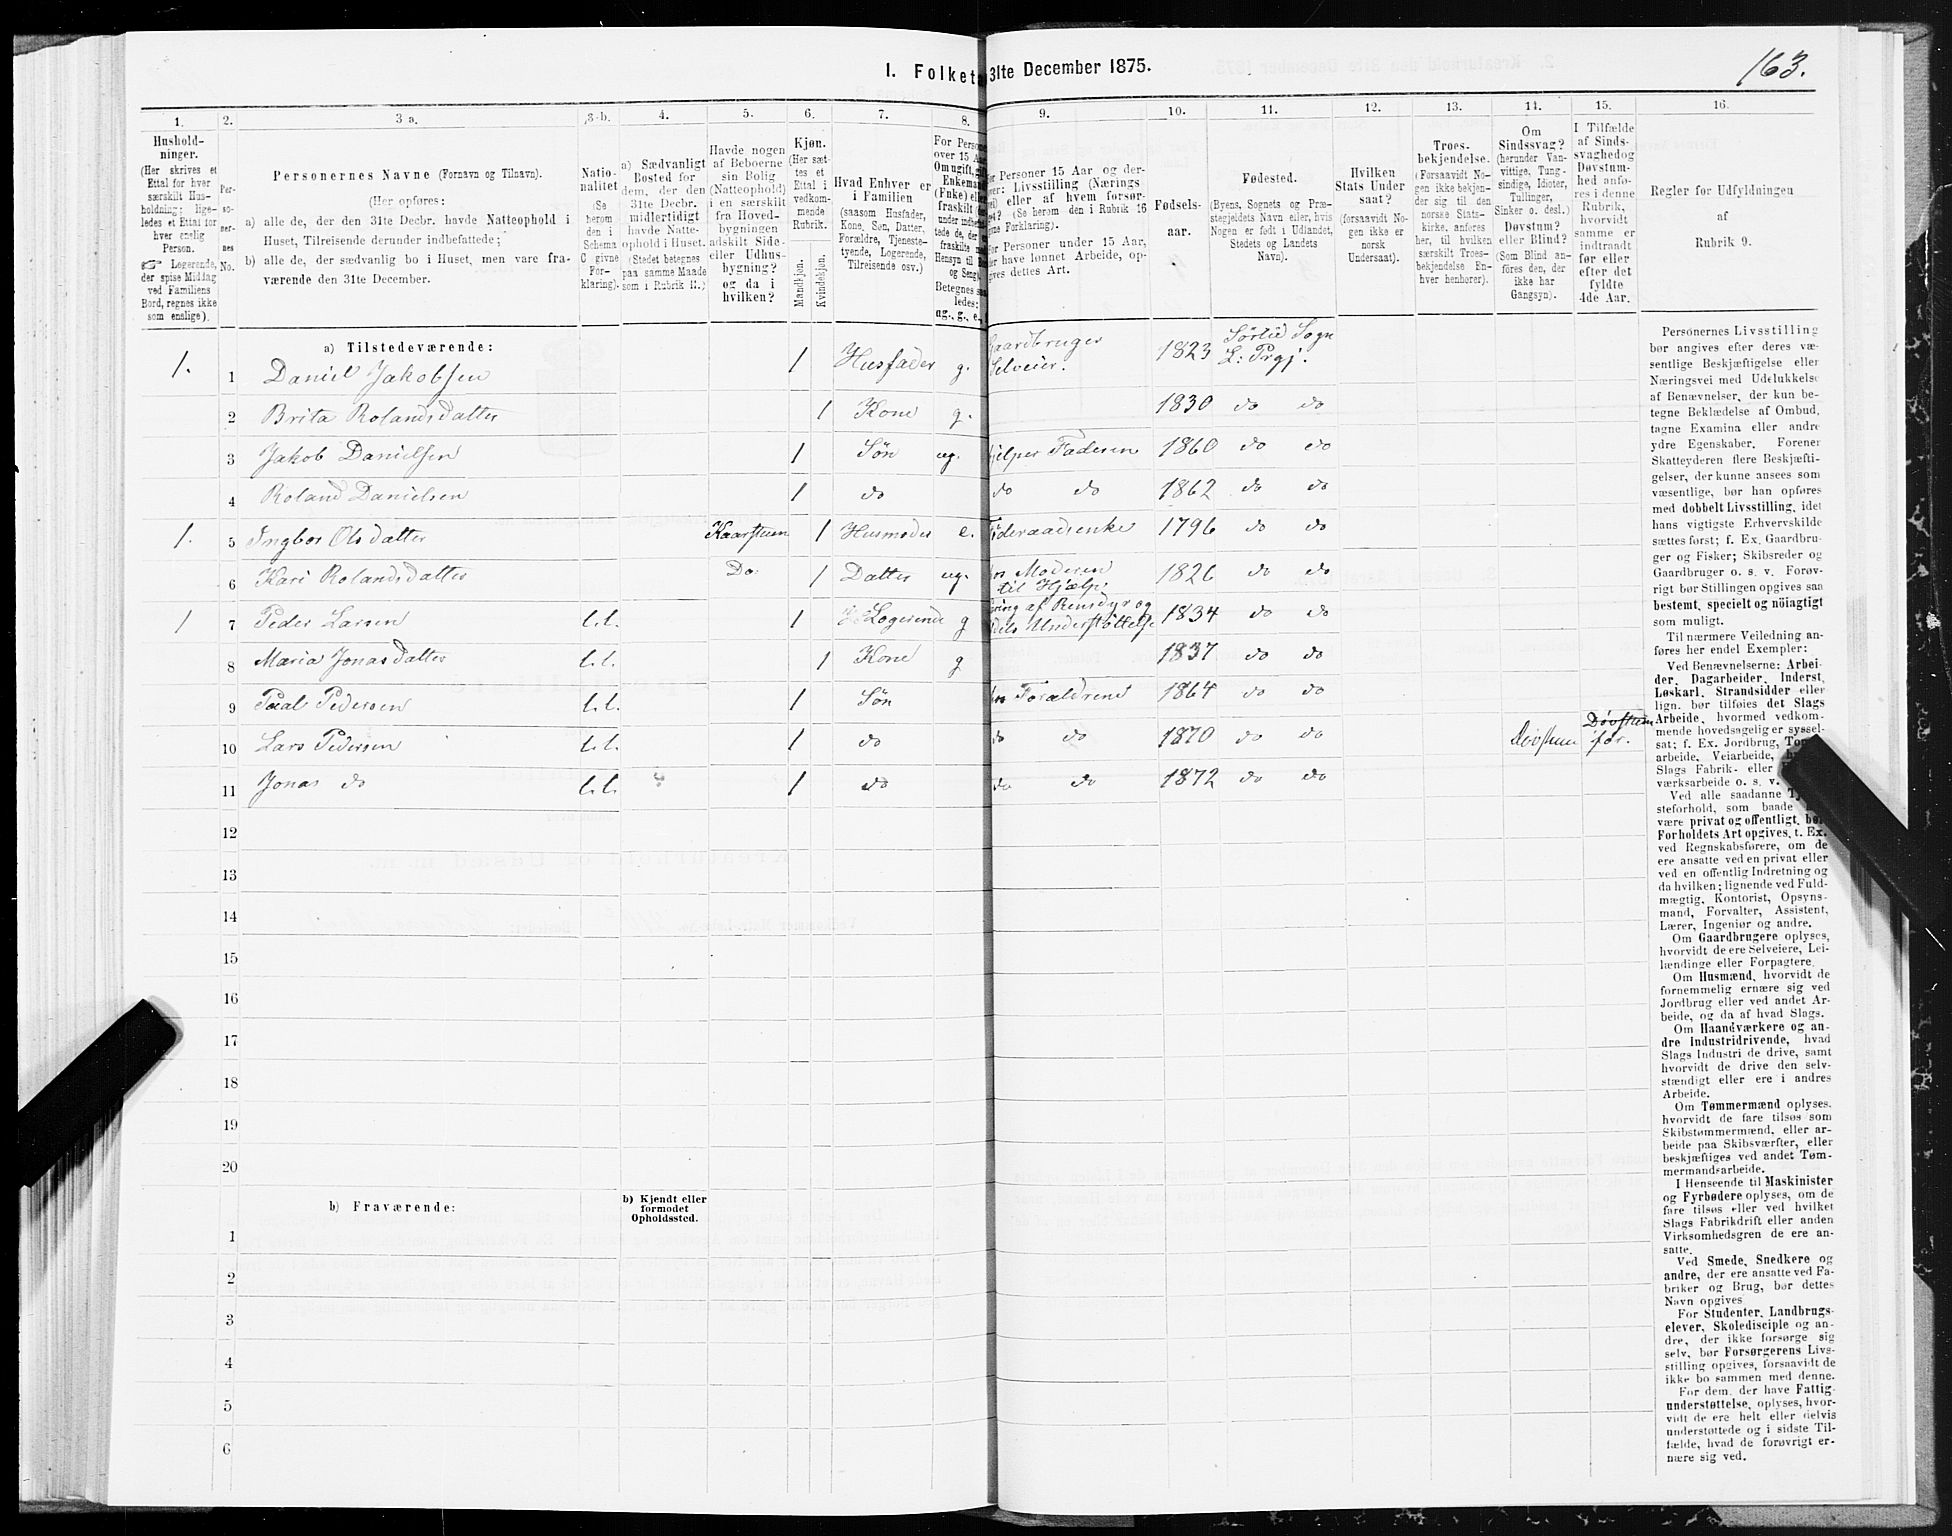 I. Folket 31te December 1875.
163.
1. 2. 3 a. 3-b. 4. 5. 6. 7. 8. 9. 10. 11. 12. 13. 14. 15. 16.
Hushold-
ninger.
(Her skrives et
Ettal for hver
særskilt Hus-
holdning; lige-
ledes et Ettal for
hver enslig
Person.
Logerende,
der spise Middag
ved Familiens
Bord, regnes ikke
som enslige).
Per-
so-
ner-
nes
No.
Personernes Navne (Fornavn og Tilnavn).
(Her opføres:
a) alle de, der den 31te Decbr. havde Natteophold i
Huset, Tilreisende derunder indbefattede;
b) alle de, der sædvanlig bo i Huset, men vare fra-
værende den 31te December.
Natio-
nalitet
(Se
herom
den i
Schema
C givne
For-
klaring).
a) Sædvanligt
Bosted for
dem, der den
31te Decbr.
midlertidigt
havde Natte-
ophold i Huset.
(Stedet betegnes
paa samme Maade
som i Rubrik 11.)
Havde nogen
af Beboerne
sin Bolig
(Natteophold)
i en særskilt
fra Hoved-
bygningen
adskilt Side-
eller Udhus-
bygning?
og da i
hvilken?
Kjøn.
(Her sæt-
tes et
Ettal i
vedkom-
mende
Rubrik.
Mandkjøn.
Kvindekjøn.
Hvad Enhver er
i Familien
(saasom Husfader,
Kone, Søn, Datter,
Forældre, Tjeneste-
tyende, Logerende,
Tilreisende osv.)
For Persone
over 15 Aa
Om ugift, gif
Enkeman
(Enke) elle
fraskilt (
under indbe
tede de, de
fraskilte m
Hensyn til B
og Seng).
Betegnes saa
ledes:
ug., g., e.,
For Personer 15 Aar og der-
over: Livsstilling (Nærings
vei) eller af hvem forsør-
get? (Se herom den i Rubrik 16
givne Forklaring).
For Personer under 15 Aar,
der have lønnet Arbeide, op-
gives dettes Art.
Fødsels-
aar.
Fødested.
(Byens, Sognets og Præ-
stegjeldets Navn eller, hvis
Nogen er født i Udlandet,
Stedets og Landets
Navn).
Hvilken
Stats Under
saat?
(forsaavidt No-
gen ikke er
norsk
Undersaat).
Troes-
bekjendelse.
(Forsaavidt No-
gen ikke bekjen-
der sig til den
norske Stats-
kirke, anføres
her, til hvilken
særskilt Troes-
bekjendelse En-
hver henhører).
Om
Sindssvag?
(herunder Van-
vittige, Tung-
sindige, Idioter,
Tullinger,
Sinker o. desl.)
Døvstum?
eller Blind?
(Som Blind an-
føres den, der
ikke har
Gangsyn).
I Tilfælde
af Sinds-
svaghed og
Døvstum-
hed anfø-
res i denne
Rubrik,
hvorvidt
samme er
indtraadt
før eller
efter det
fyldte
4de Aar.
Regler for Udfyldningen
af
Rubrik 9.
a) Tilstedeværende:
1. 1 Daniel Jakobsen 1 Husfader g. Gaardbruger Selveier. 1823 Sørlid Sogn L: Prgj.
2 Brita Rolandsdatter 1 Kone g. 1830 do do
3 Jakob Danielsen 1 Søn ug. hjelper Faderen 1860 do do
4 Roland Danielsen 1 do do do 1862 do do
1. 5 Ingbor Olsdatter Kaarstuen 1 Husmoder e. Føderaadsenke 1796 do do
6 Kari Rolandsdatter Do: 1 Datter ug. hos Moderen til Hjælp 1826 do do
1 7 Peder Larsen l.l. 1 Logerende g Næring af Rensdyr og dels Understøttelse 1834 do do
8 Maria Jonasdatter l.l. 1 Kone g 1837 do do
9 Paal Pedersen l.l. 1 Søn hos Forældrene 1864 do do
10 Lars Pedersen l.l. 1 do do do 1870 do do Døvstum Døvstum før.
11 Jonas do l.l. 1 do do do 1872 do do
12
13
14
15
16
17
18
19
20
b) Fraværende:
b) Kjendt eller
formodet
Opholdssted.
1
2
3
4
5
6
Personernes Livsstilling
bør angives efter deres væ-
sentlige Beskjæftigelse eller
Næringsvei med Udelukkelse
af Benævnelser, der kun be-
tegne Beklædelse af Ombud,
tagne Examina eller andre
ydre Egenskaber. Forener
Skatteyderen flere Beskjæfti-
gelser, der kunne ansees som
væsentlige, bør han opføres
med dobbelt Livsstilling, idet
hans vigtigste Erhvervskilde
sættes først; f. Ex. Gaardbru-
ger og Fisker; Skibsreder og
Gaardbruger o. s. v. Forøv-
rigt bør Stillingen opgives saa
bestemt, specielt og nöiagtigt
som muligt.
Til nærmere Veiledning an-
føres her endel Exempler:
Ved Benævnelserne: Arbei-
der, Dagarbeider, Inderst,
Løskarl, Strandsidder eller
lign. bør tilføies det Slags
Arbeide, hvormed vedkom-
mende hovedsagelig er syssel-
sat; f. Ex. Jordbrug, Tom
arbeide, Veiarbeide,
Slags Fabrik- eller
værksarbeide o. s. v.
Ved alle saadanne Tj
steforhold, som baade
være privat og offentligt, bør
Forholdets Art opgives, t. Ex.
ved Regnskabsførere, om de
ere ansatte ved en privat eller
ved en offentlig Indretning og
da hvilken; lignende ved Fuld-
mægtig, Kontorist, Opsyns-
mand, Forvalter, Assistent,
Lærer, Ingeniør og andre.
Om Gaardbrugere oplyses,
hvorvidt de ere Selveiere, Lei-
lændinge eller Forpagtere.
Om Husmænd, hvorvidt de
fornemmelig ernære sig ved
Jordbrug eller ved andet Ar-
beide, og da af hvad Slags.
Om Haandværkere og an-
dre Industridrivende, hvad
Slags Industri de drive, samt
hvorvidt de drive den selv-
stændigt eller ere i andres
Arbeide.
Om Tømmermænd oplyses,
hvorvidt de fare tilsøs som
Skibstømmermænd, eller ar-
beide paa Skibsværfter, eller
beskjæftiges ved andet Tøm-
mermandsarbeide.
I Henseende til Maskinister
og Fyrbødere oplyses, om de
fare tilsøs eller ved hvilket
Slags Fabrikdrift eller anden
Virksomhedsgren de ere an-
satte.
Ved Smede, Snedkere og
andre, der ere ansatte ved Fa-
briker og Brug, bør dettes
Navn opgives
For Studenter, Landbrugs-
elever, Skoledisciple og an-
dre, der ikke forsørge sig
selv, bør Forsørgerens Livs-
stilling opgives, forsaavidt de
ikke bo sammen med denne.
For dem, der have Fattig-
understøttelse, oplyses, hvor-
vidt de ere helt eller delvis
understøttede og i sidste Til-
fælde, hvad de forøvrigt er-
nære sig ved.